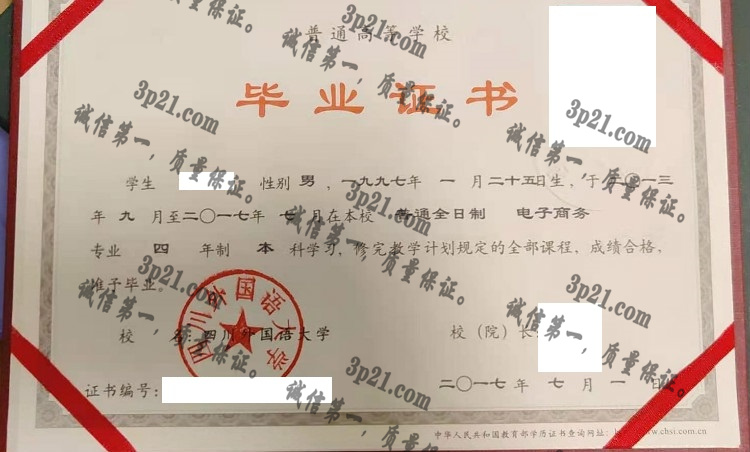 普通高等学校
毕业证书
学生 性别 男，一九九七年 一 月二十五日生，于二〇一三
年 九 月至二〇一七年 七 月在本校 普通全日制 电子商务
专业 四 年制 本 科学习，修完教学计划规定的全部课程，成绩合格，
准予毕业。
校 名：四川外国语大学
校（院）长：
证书编号：
二〇一七年 七 月 一 日
中华人民共和国教育部学历证书查询网址：http://www.chsi.com.cn
四川外国语大学
3p21.com
诚信第一，质量保证。
3p21.com
诚信第一，质量保证。
3p21.com
诚信第一，质量保证。
3p21.com
诚信第一，质量保证。
3p21.com
诚信第一，质量保证。
3p21.com
诚信第一，质量保证。
3p21.com
诚信第一，质量保证。
3p21.com
诚信第一，质量保证。